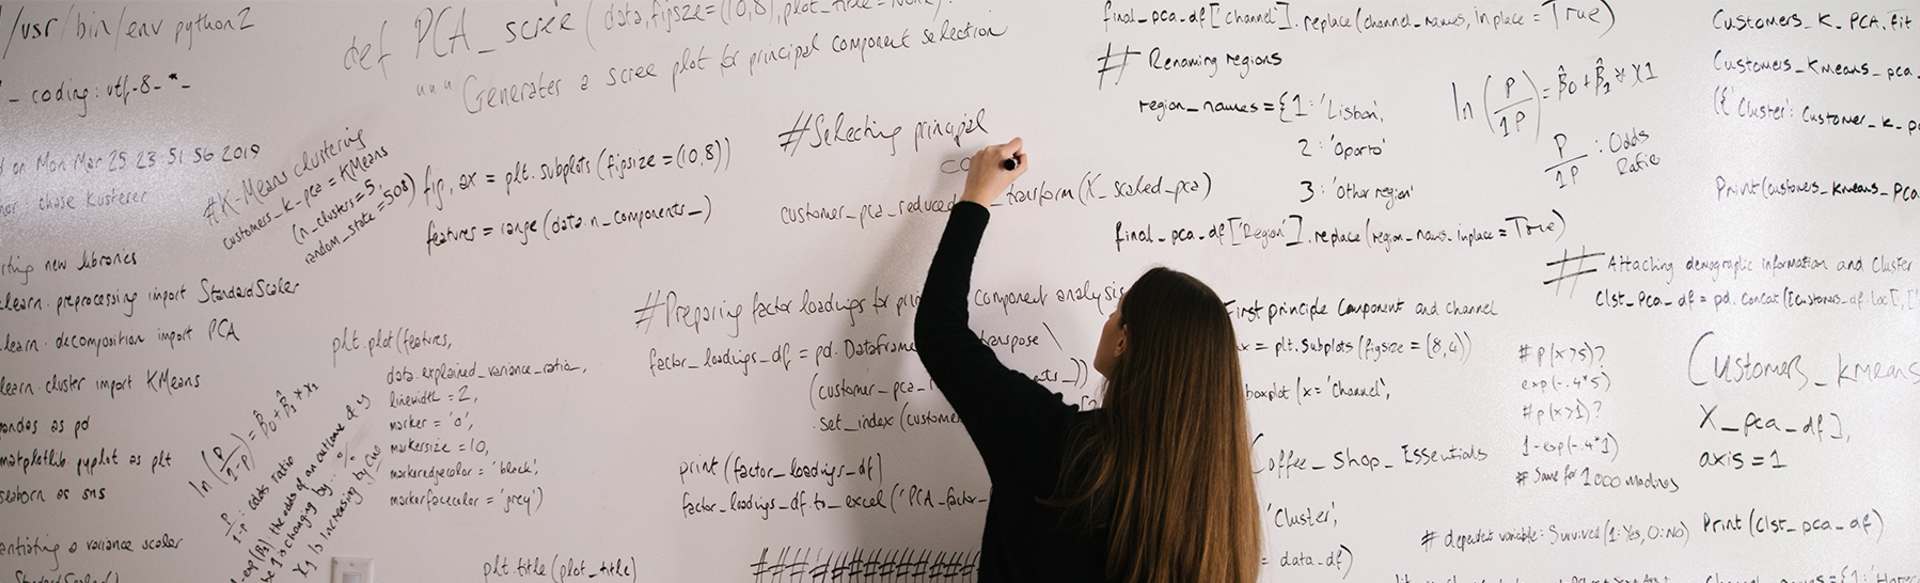 /usr/bin/env python2
_ coding: utf-8 -*-
on Mon Mar 25 23:51:56 2019
chase kusterer
#K-Means clustering
customers_k_pca = KMeans
(n_clusters = 5,
random_state = 508)
new libraries
learn. preprocessing import StandardScaler
learn. decomposition import PCA
learn. cluster import KMeans
as pd
matplotlib pyplot as plt
seaborn as sns
a variance scaler
StandardScaler()
ln (P/1-P) = β̂0 + β̂1 * x1
P/1-P : odds ratio
the odds of an outcome of y
is changing by: %
X1 is increasing by one
def PCA_scree (data, figsize = (10,8), plot_title = None):
""" Generates a scree plot for principal component selection
fig, ax = plt. subplots (figsize = (10,8))
features = range (data.n_components_)
plt.plot (features,
data.explained_variance_ratio_,
linewidth = 2,
marker = 'o',
markersize = 10,
markeredgecolor = 'black',
markerfacecolor = 'grey')
plt.title (plot_title)
#Selecting principal
co
customer_pca_reduced _transform (X_scaled_pca)
#Preparing factor loadings for component analysis
factor_loadings_df = pd. Dataframe transpose \
(customer_pca_ ))
.set_index (custome
print (factor_loadings_df)
factor_loadings_df.to_excel ('PCA_factor_
final_pca_df ['channel'].replace (channel_names, inplace = True)
## Renaming regions
region_names = {1: 'Lisbon',
2: 'Oporto'
3: 'Other region'
final_pca_df ['Region'].replace (region_names_inplace = True)
First principle Component and channel
= plt. Subplots (figsize = (8,4))
boxplot (x = 'Channel',
Coffee_Shop_Essentials
'Cluster',
= data_df)
ln (P/1P) = β̂0 + β̂1 * X1
P/1P : Odds Ratio
# p(x>5)?
exp(-.4*5)
# p(x>1)?
1-exp(-.4*1)
# Same for 1000 machines
# dependent variable: Survived (1: Yes, 0: No)
Customers_K_PCA.fit
Customers_Kmeans_pca_
({'Cluster': Customer_K_p
Print (customers_kmeans_PCA
## Attaching demographic information and Cluster
Clst_Pca_df = pd. concat ([Customers_df.loc[:,[
(Customers_kmeans
X_pca_df],
axis = 1
Print (Clst_pca_df)